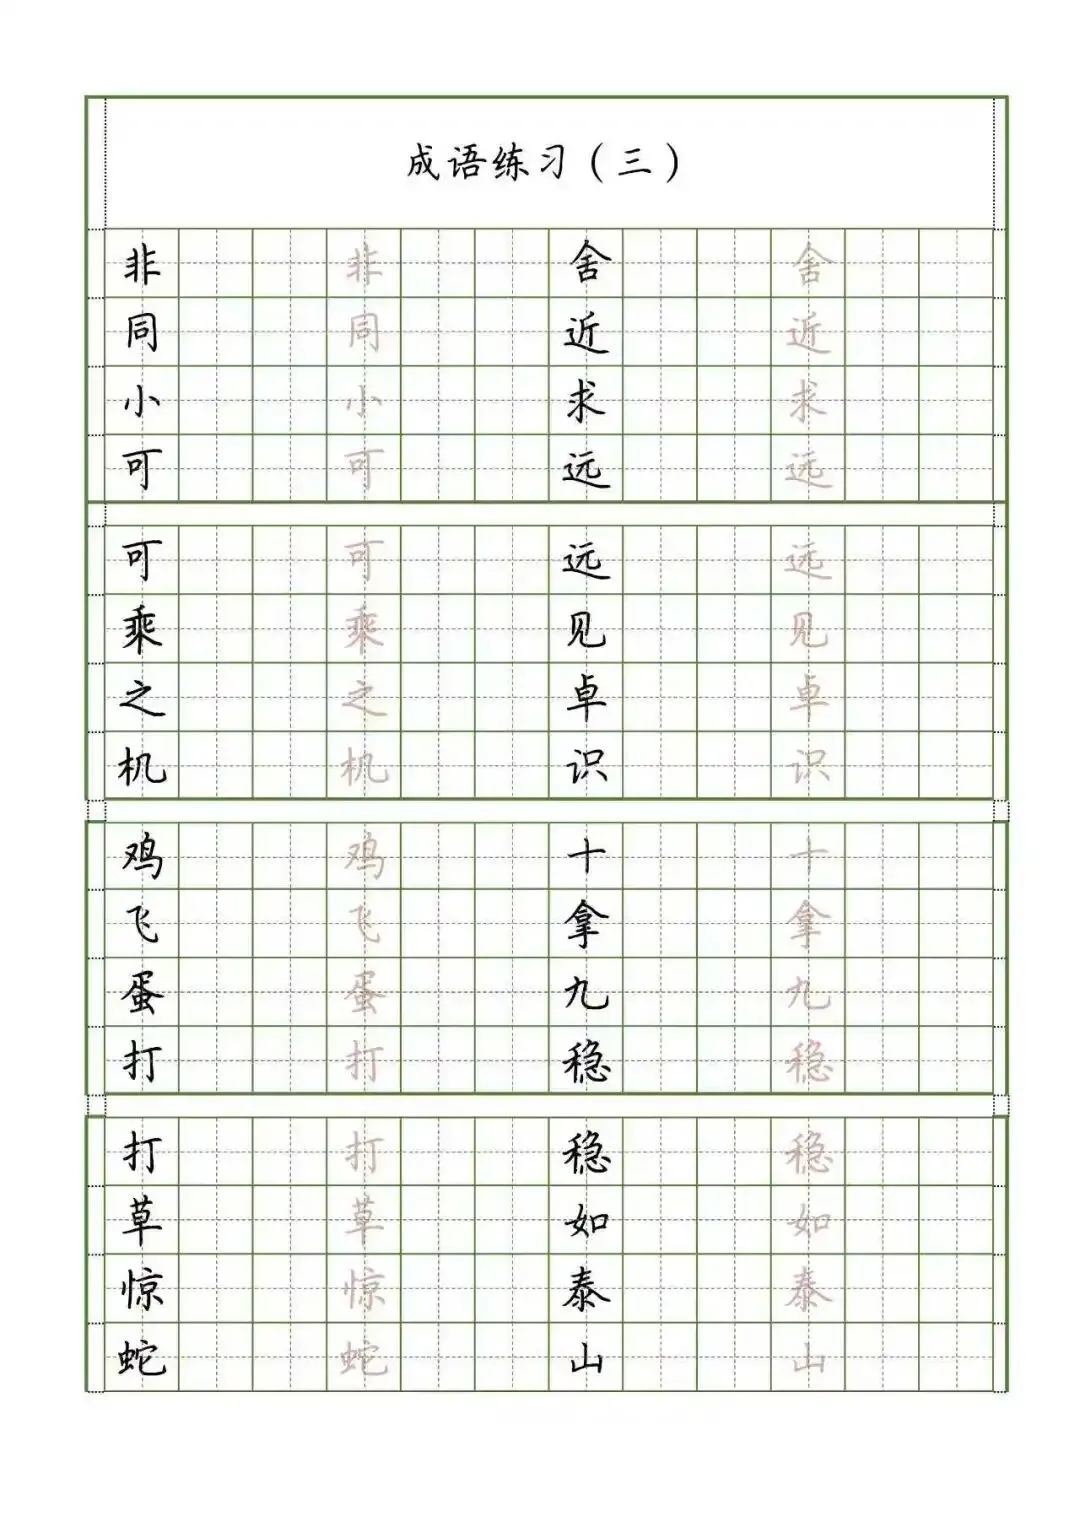 成语练习（三）
非 非 舍 舍
同 同 近 近
小 小 求 求
可 可 远 远
可 可 远 远
乘 乘 见 见
之 之 卓 卓
机 机 识 识
鸡 鸡 十 十
飞 飞 拿 拿
蛋 蛋 九 九
打 打 稳 稳
打 打 稳 稳
草 草 如 如
惊 惊 泰 泰
蛇 蛇 山 山